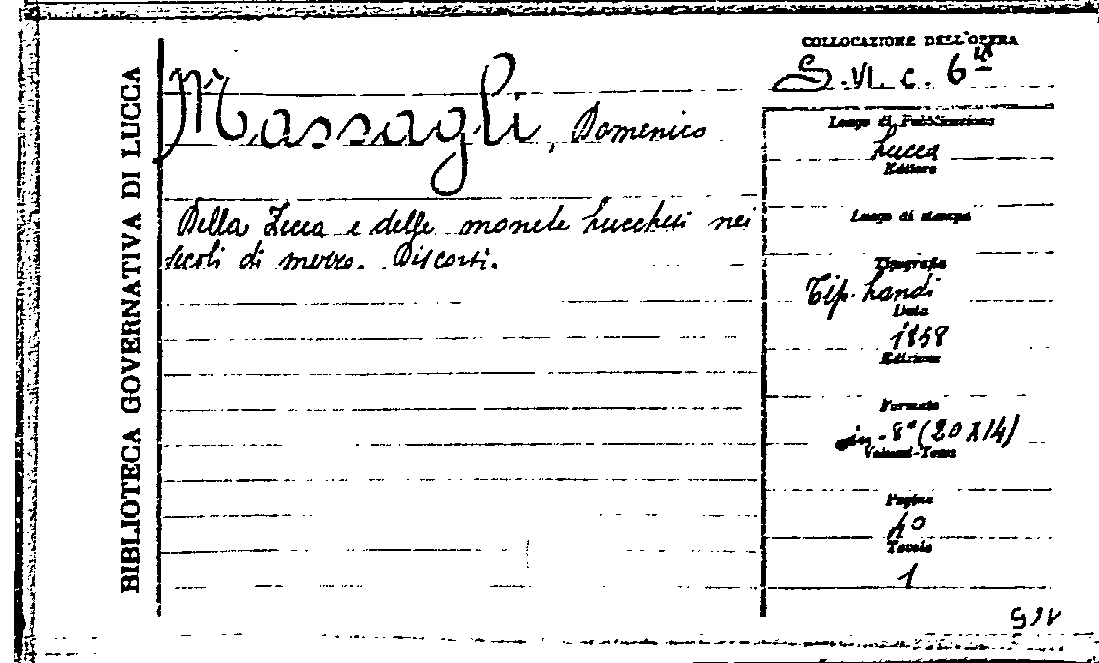 BIBLIOTECA GOVERNATIVA DI LUCCA
Massagli, Domenico
Della Zecca e delle monete Lucchesi nei
secoli di mezzo. Discorsi.
COLLOCAZIONE DELL'OPERA
S. VI. c. 6 IX
Luogo di Pubblicazione
Lucca
Editore
Luogo di stampa
Tipografia
Tip. Landi
Data
1858
Edizione
Formato
in-8° (20 X 14)
Volumi-Tomi
Pagine
40
Tavole
1